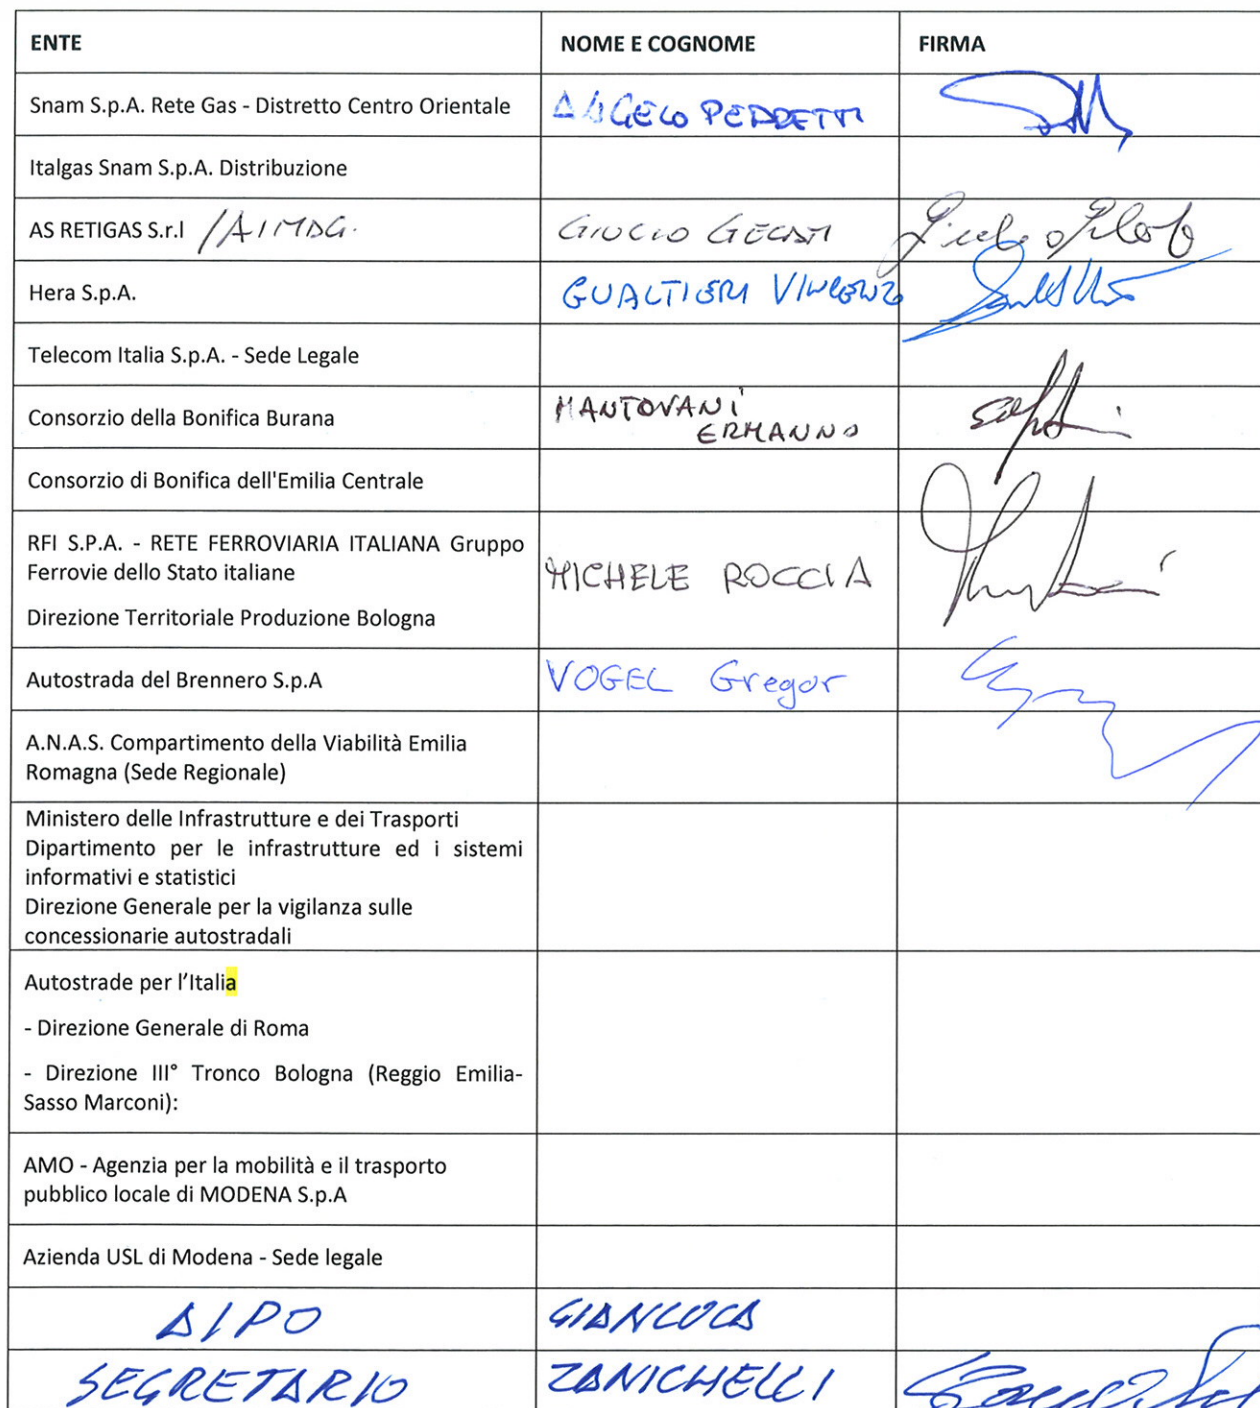 ENTE NOME E COGNOME FIRMA
Snam S.p.A. Rete Gas - Distretto Centro Orientale ANGELO PEDRETTI
Italgas Snam S.p.A. Distribuzione
AS RETIGAS S.r.l /AIMAG. GIULIO
Hera S.p.A. GUALTIERI VINCENZO
Telecom Italia S.p.A. - Sede Legale
Consorzio della Bonifica Burana MANTOVANI
ERMANNO
Consorzio di Bonifica dell'Emilia Centrale
RFI S.P.A. - RETE FERROVIARIA ITALIANA Gruppo
Ferrovie dello Stato italiane
MICHELE ROCCIA
Direzione Territoriale Produzione Bologna
Autostrada del Brennero S.p.A VOGEL Gregor
A.N.A.S. Compartimento della Viabilità Emilia
Romagna (Sede Regionale)
Ministero delle Infrastrutture e dei Trasporti
Dipartimento per le infrastrutture ed i sistemi
informativi e statistici
Direzione Generale per la vigilanza sulle
concessionarie autostradali
Autostrade per l'Italia
- Direzione Generale di Roma
- Direzione III° Tronco Bologna (Reggio Emilia-
Sasso Marconi):
AMO - Agenzia per la mobilità e il trasporto
pubblico locale di MODENA S.p.A
Azienda USL di Modena - Sede legale
AIPO GIANLUCA
SEGRETARIO ZANICHELLI